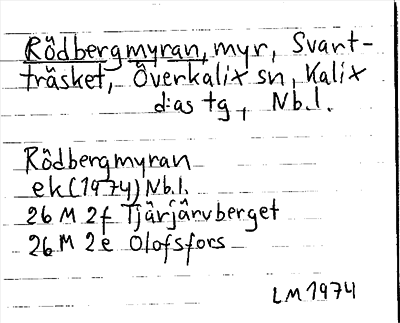 Rödbergmyran, myr, Svart-
träsket, Överkalix sn, Kalix
d:as tg, Nb.l.
Rödbergmyran
ek (1974) Nb.l.
26 M 2f Tjärjärvberget
26 M 2e Olofsfors
LM 1974